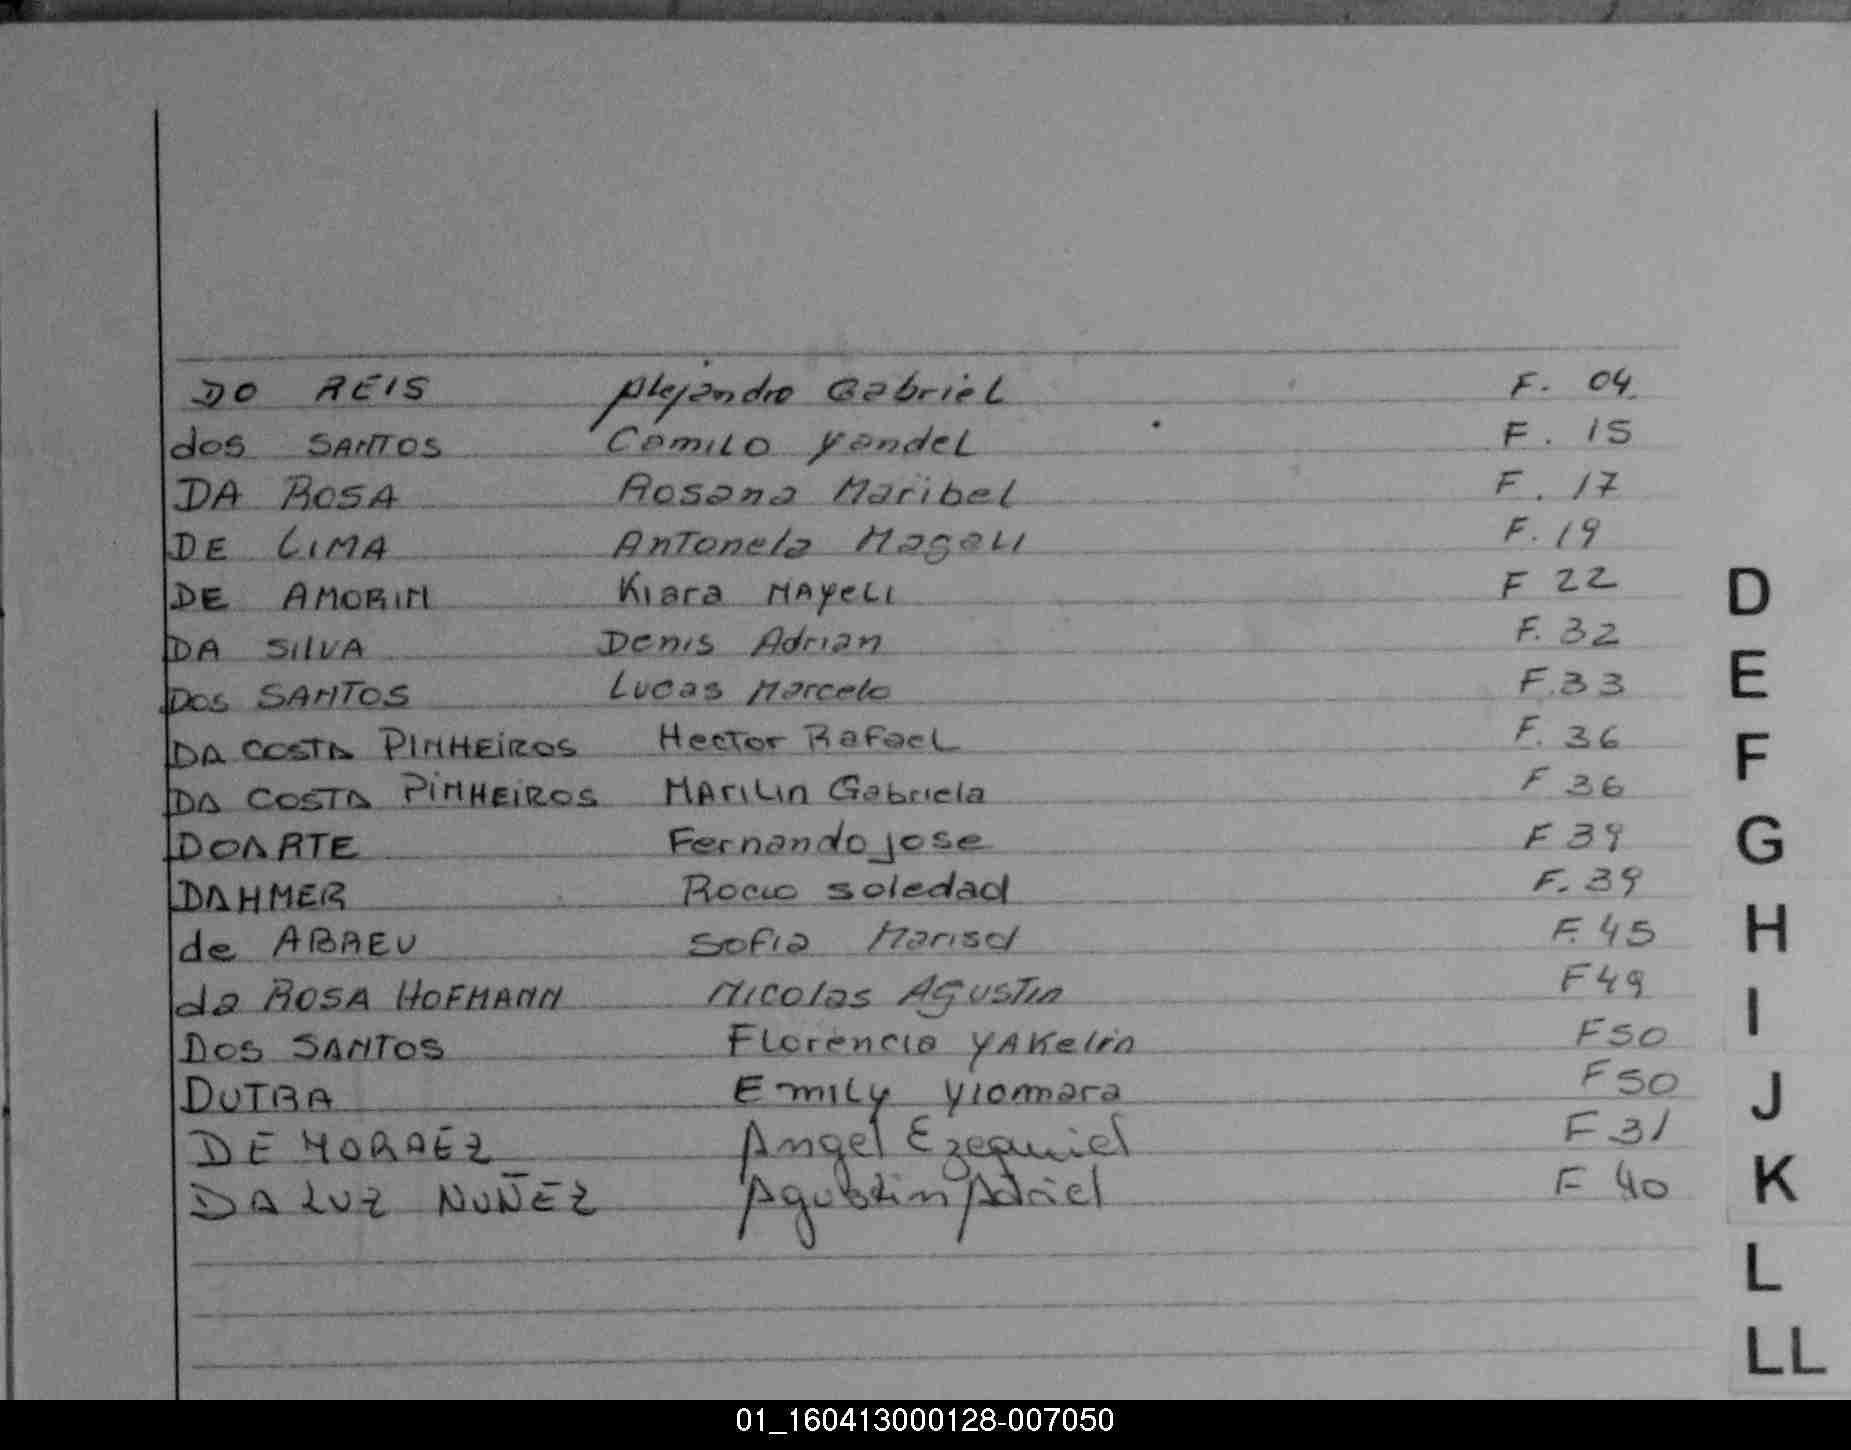 DO REIS Alejandro Gabriel F. 04
dos SANTOS Camilo Yandel F. 15
DA ROSA Rosana Maribel F. 17
DE LIMA Antonela Magali F. 19
DE AMORIM Kiara MAYELI F 22
DA SILVA Denis Adrian F. 32
Dos SANTOS Lucas Marcelo F. 33
DA COSTA PINHEIROS Hector Rafael F. 36
DA COSTA PINHEIROS MARILIN Gabriela F 36
DOARTE Fernando jose F 39
DAHMER Rocio soledad F. 39
de ABREU Sofia Marisol F. 45
da ROSA HOFMANN Nicolas AGUSTIN F 49
DOS SANTOS Florencia YAKELIN F 50
DUTRA Emily Yiomara F 50
DE MORAEZ Angel Ezequiel F 31
DA LUZ NUÑEZ Agustin Adriel F 40
D
E
F
G
H
I
J
K
L
LL
01_160413000128-007050